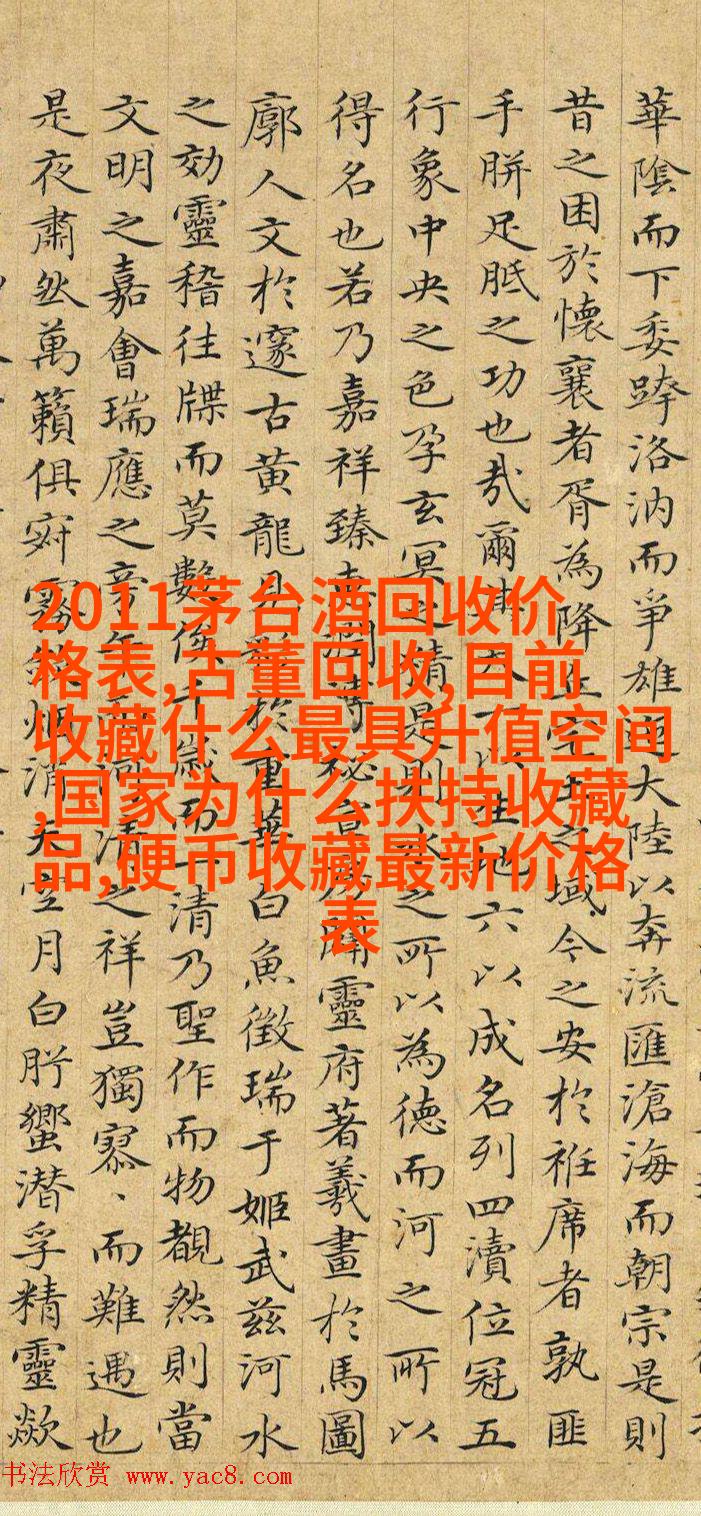 華陰而下委跨洛汭而爭雄大陸以奔流匯滄海而朝宗是則
昔之困於懷襄者胥為降丘宅土之域今之安於袵席者孰匪
手胼足胝之功也哉爾其天一以生地六以成名列四瀆位冠五
行象中央之色孕玄冥之精是則水之所以為德而河之所以
得名也若乃嘉祥臻秘靈府著羲畫於馬圖
廓人文於邃古黃龍見於重華白魚徵瑞于姬武茲河水
之効靈稽往牒而莫數俟千歲而一清乃聖作而物覩然則當
文明之嘉會瑞應之清之祥豈獨寥、而難遇也
是夜肅然萬籟俱寂霧烟消天空月白肸蠁潛孚精靈歘
2011茅台酒回收价
格表,古董回收,目前
收藏什么最具升值空间
,国家为什么扶持收藏
品,硬币收藏最新价格
表
书法欣赏 www.yac8.com